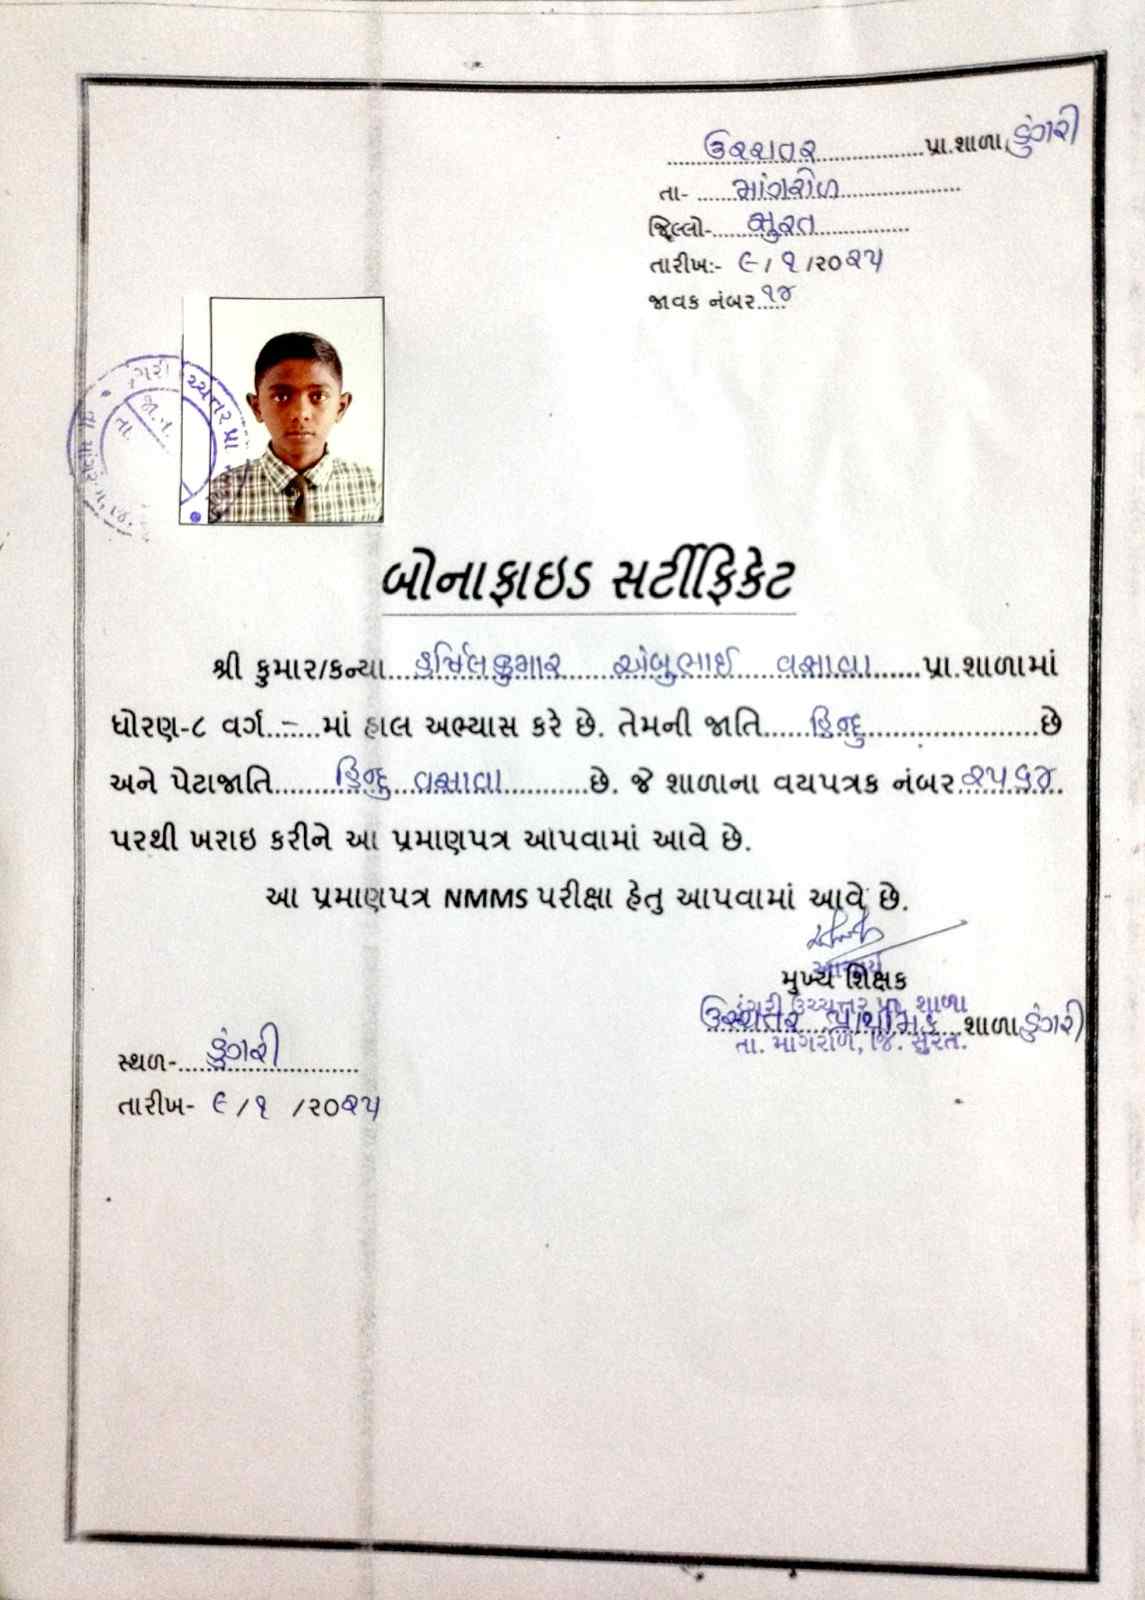 ઉચ્ચતર પ્રા.શાળા ડુંગરી
તા- માંગરોળ
જિલ્લો- સુરત
તારીખ:- ૯/૧/૨૦૨૫
જાવક નંબર ૧૪
બોનાફાઇડ સર્ટીફિકેટ
શ્રી કુમાર/કન્યા હર્ષિલકુમાર વસાવા પ્રા.શાળામાં
ધોરણ-૮ વર્ગ - માં હાલ અભ્યાસ કરે છે. તેમની જાતિ હિન્દુ છે
અને પેટાજાતિ હિન્દુ વસાવા છે. જે શાળાના વયપત્રક નંબર ૨૫૬૪
પરથી ખરાઇ કરીને આ પ્રમાણપત્ર આપવામાં આવે છે.
આ પ્રમાણપત્ર NMMS પરીક્ષા હેતુ આપવામાં આવે છે.
આચાર્ય
મુખ્ય શિક્ષક
ડુંગરી ઉચ્ચત્તર પ્રા. શાળા
ઉચ્ચતર પ્રાથમિક શાળા ડુંગરી
તા. માંગરોળ, જિ. સુરત.
સ્થળ- ડુંગરી
તારીખ- ૯/૧ /૨૦૨૫